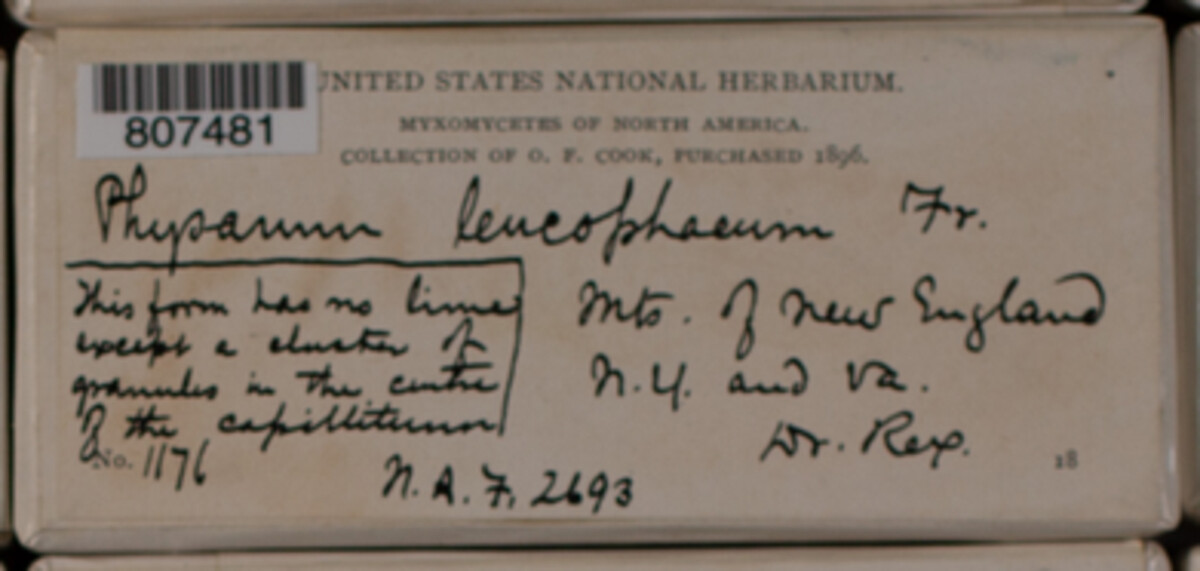 UNITED STATES NATIONAL HERBARIUM.
807481
MYXOMYCETES OF NORTH AMERICA.
COLLECTION OF O. F. COOK, PURCHASED 1896.
Physarum leucophaeum Fr.
This form has no lime
except a cluster of
granules in the centre
of the capillitium
Mts. of New England
N.Y. and Va.
Dr. Rex.
18
No. 1176
N. A. F. 2693